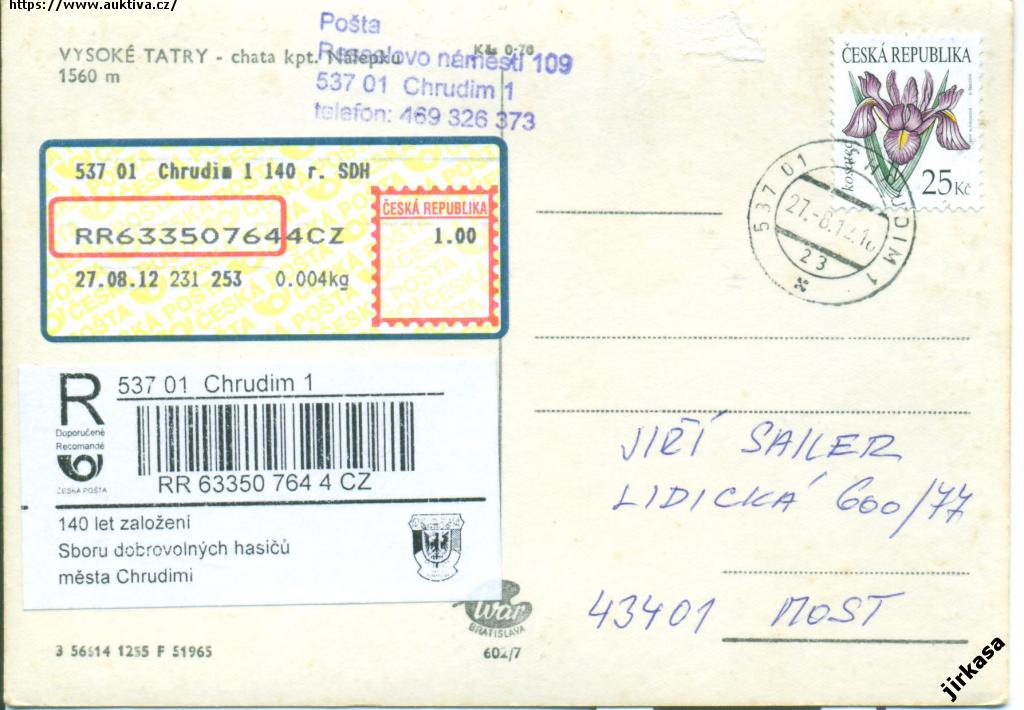 https://www.auktiva.cz/
VYSOKÉ TATRY - chata kpt. Nálepku
1560 m
Kčs 0·70
Pošta
Resslovo náměstí 109
537 01 Chrudim 1
telefon: 469 326 373
ČESKÁ REPUBLIKA
kosatec
25 Kč
537 01 CHRUDIM 1
27.-8.12.10
23
537 01 Chrudim 1 140 r. SDH
RR633507644CZ
27.08.12 231 253 0.004kg
ČESKÁ REPUBLIKA
1.00
R
Doporučeně
Recomandé
ČESKÁ POŠTA
537 01 Chrudim 1
RR 63350 764 4 CZ
140 let založení
Sboru dobrovolných hasičů
města Chrudimi
JIŘÍ SAILER
LIDICKÁ 600/77
43401 MOST
BRATISLAVA
602/7
3 56614 1255 F 51965
jirkasa